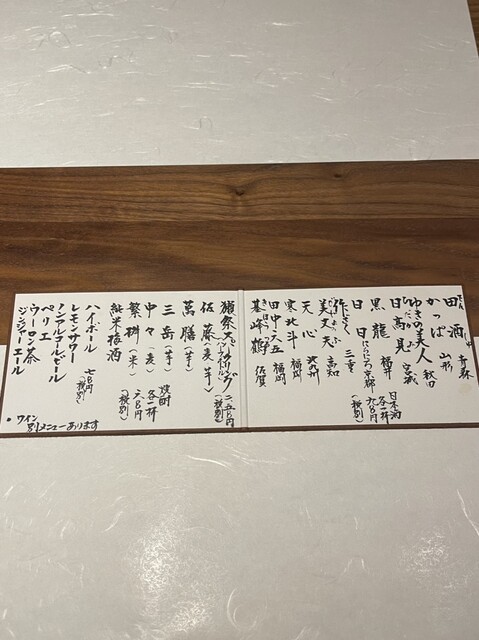 田酒 青森
かっぱ 山形
ゆきの美人 秋田
日高見 宮城
黒龍 福井
日日 にちにち 京都
日本酒 各一杯 九八〇円 (税別)
三重
美丈夫 高知
天心 北九州
寒北斗 福岡
田中六五 福岡
基峰鶴 佐賀
獺祭 スパークリング 二、五〇〇円 (税別)
佐藤 (麦・芋)
萬膳 (芋)
三岳 (芋)
中々 (麦)
繁桝 (米)
純米梅酒
焼酎 各一杯 六八〇円 (税別)
ハイボール
レモンサワー
ノンアルコールビール
ペリエ
ウーロン茶
ジンジャーエール
(税別)
・ワイン
別メニューあります